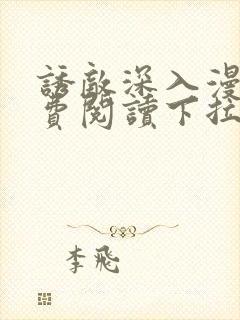 誘敵深入漫
費閱讀下拉
李飛